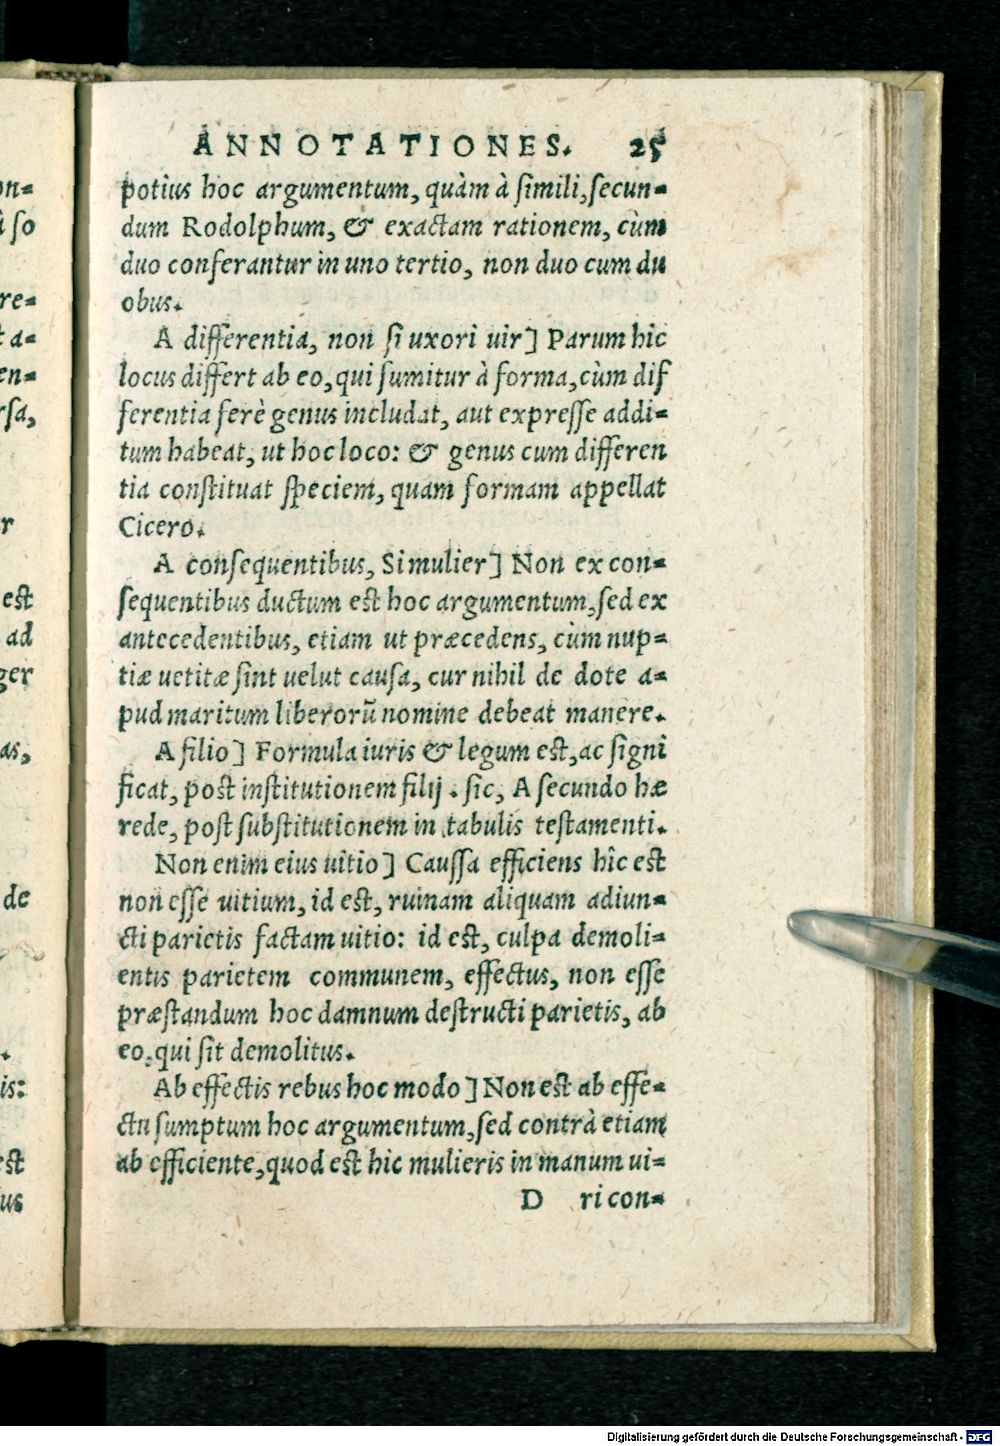 ANNOTATIONES. 25
potius hoc argumentum, quàm à simili, secun-
dum Rodolphum, & exactam rationem, cùm
duo conferantur in uno tertio, non duo cum du
obus.
A differentia, non si uxori uir] Parum hîc
locus differt ab eo, qui sumitur à forma, cùm dif
ferentia ferè genus includat, aut expresse addi-
tum habeat, ut hoc loco: & genus cum differen
tia constituat speciem, quam formam appellat
Cicero.
A consequentibus, Si mulier] Non ex con-
sequentibus ductum est hoc argumentum, sed ex
antecedentibus, etiam ut præcedens, cùm nup-
tiæ uetitæ sint uelut causa, cur nihil de dote a-
pud maritum liberorũ nomine debeat manere.
A filio] Formula iuris & legum est, ac signi
ficat, post institutionem filij. sic, A secundo hæ
rede, post substitutionem in tabulis testamenti.
Non enim eius uitio] Caussa efficiens hîc est
non esse uitium, id est, ruinam aliquam adiun-
cti parietis factam uitio: id est, culpa demoli-
entis parietem communem, effectus, non esse
præstandum hoc damnum destructi parietis, ab
eo, qui sit demolitus.
Ab effectis rebus hoc modo] Non est ab effe-
ctu sumptum hoc argumentum, sed contrà etiam
ab efficiente, quod est hic mulieris in manum ui-
D ri con-
on-
so
re-
a-
en-
rsa,
r
est
ad
ger
as,
de
is:
est
ius
Digitalisierung gefördert durch die Deutsche Forschungsgemeinschaft - DFG